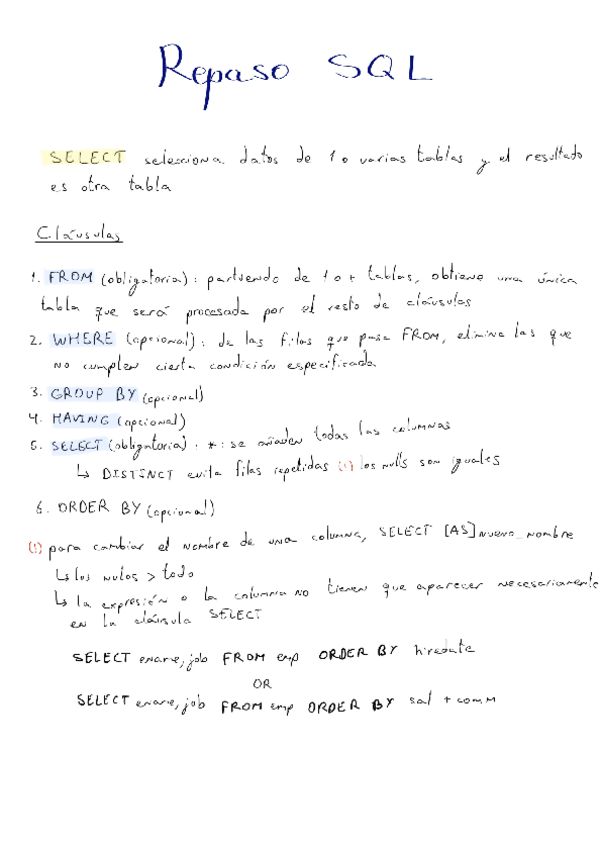 Repaso SQL
SELECT selecciona datos de 1 o varias tablas y el resultado
es otra tabla
Cláusulas
1. FROM (obligatoria) : partiendo de 1 o + tablas, obtiene una única
tabla que será procesada por el resto de cláusulas
2. WHERE (opcional) : de las filas que pasa FROM, elimina las que
no cumplen cierta condición especificada
3. GROUP BY (opcional)
4. HAVING (opcional)
5. SELECT (obligatoria) : * : se añaden todas las columnas
↳ DISTINCT evita filas repetidas (!) los nulls son iguales
6. ORDER BY (opcional)
(!) para cambiar el nombre de una columna, SELECT [AS] nuevo_nombre
↳ los nulos > todo
↳ la expresión o la columna no tienen que aparecer necesariamente
en la cláusula SELECT
SELECT ename, job FROM emp ORDER BY hiredate
OR
SELECT ename, job FROM emp ORDER BY sal + comm